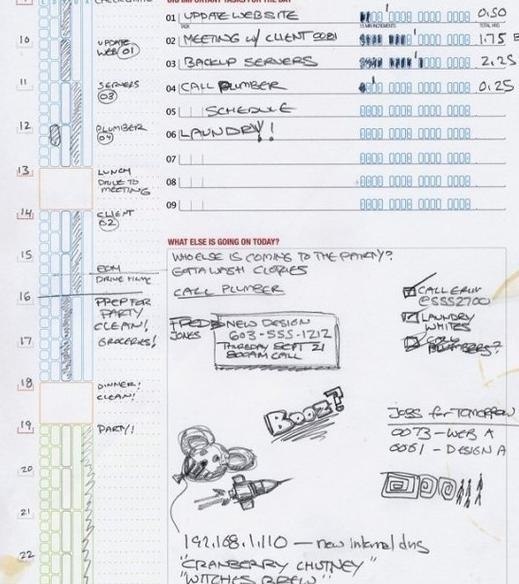 BIG IMPORTANT TASKS FOR THE DAY
01 UPDATE WEBSITE 0.50
02 MEETING W/ CLIENT 0081 1.75
03 BACKUP SERVERS 2.25
04 CALL PLUMBER 0.25
05 SCHEDULE
06 LAUNDRY!
07
08
09
10
UPDATE
WEB 01
11
SERVERS
03
12
PLUMBER
04
13
LUNCH
DRIVE TO
MEETING
14
CLIENT
02
15
EOM
DRIVE HOME
16
PREP FOR
PARTY
CLEAN!
GROCERIES!
17
18
DINNER!
CLEAN!
19
PARTY!
20
21
22
WHAT ELSE IS GOING ON TODAY?
WHO ELSE IS COMING TO THE PARTY?
GOTTA WASH CLOTHES
CALL PLUMBER
FRED
JONES
NEW DESIGN
603-555-1212
THURSDAY SEPT 21
800AM CALL
CALL ERIN
@5552700
LAUNDRY
WHITES
BOOZ?
JOBS for TOMORROW
0073-WEB A
0061-DESIGN A
192.168.1.110 — new internal dns
"CRANBERRY CHUTNEY"
"WITCHES BREW"